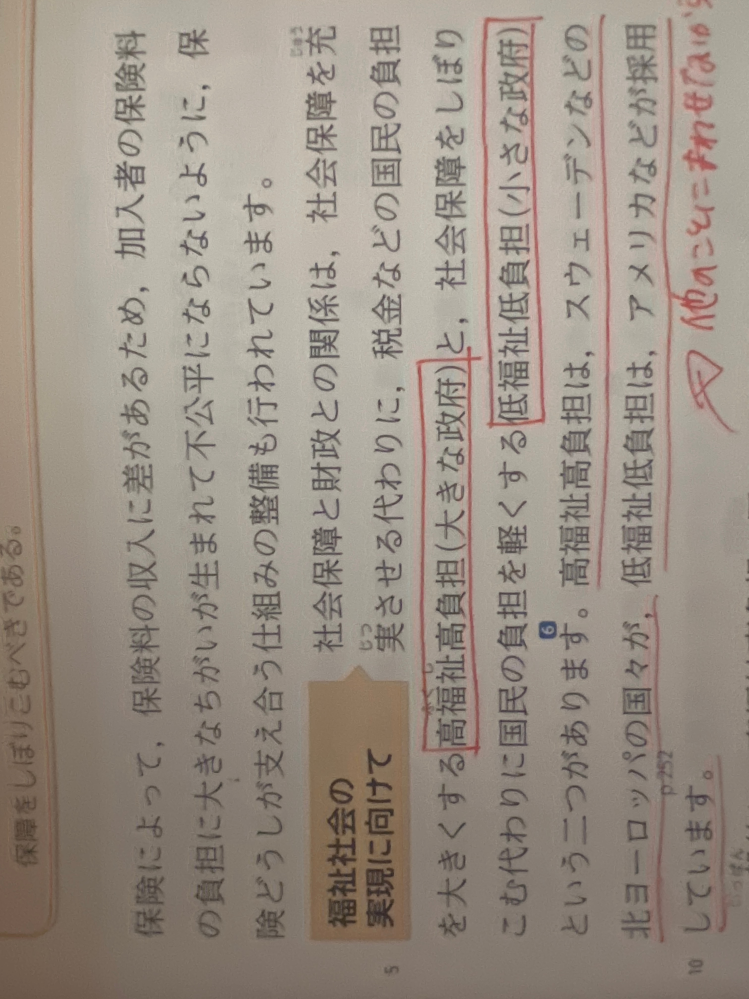 保障をしぼりこむべきである。
保険によって，保険料の収入に差があるため，加入者の保険料
の負担に大きなちがいが生まれて不公平にならないように，保
険どうしが支え合う仕組みの整備も行われています。
福祉社会の
実現に向けて
社会保障と財政との関係は，社会保障を充
じゅう
実させる代わりに，税金などの国民の負担
じっ
を大きくする高福祉高負担(大きな政府)と，社会保障をしぼり
ふくし
こむ代わりに国民の負担を軽くする低福祉低負担(小さな政府)
という二つがあります。高福祉高負担は，スウェーデンなどの
6
北ヨーロッパの国々が，低福祉低負担は，アメリカなどが採用
p.252
しています。
5
10